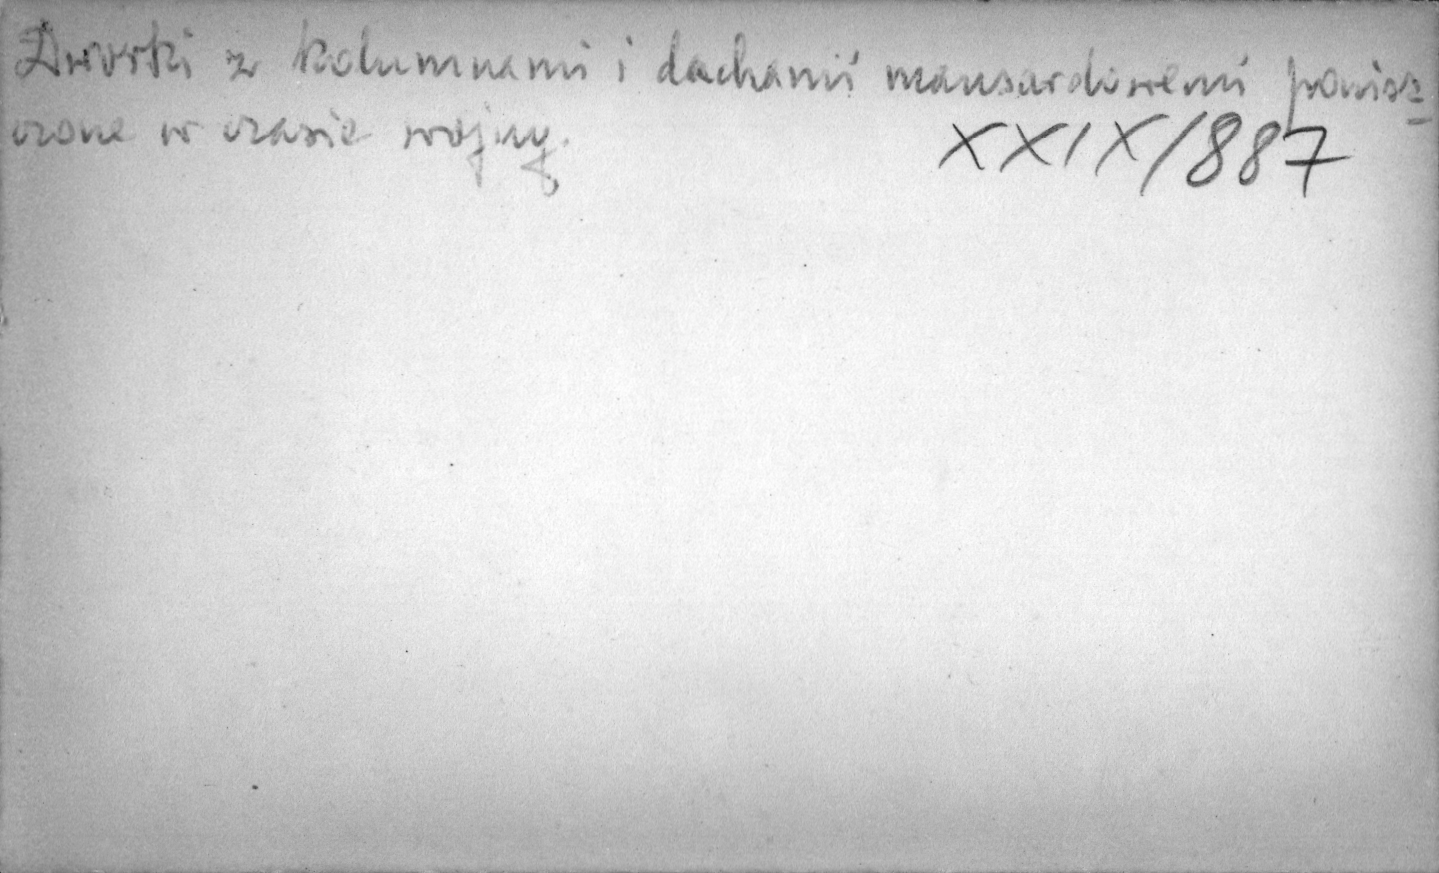 Dworki z kolumnami i dachami mansardowemi ponisz=
czone w czasie wojny.
XXIX/887